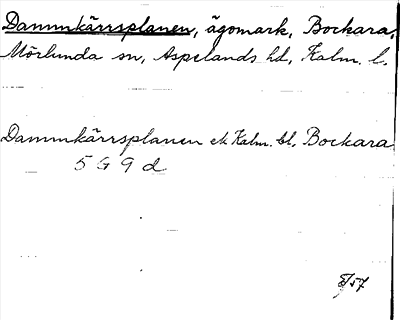 Dammkärrsplanen, ägomark, Bockara,
Mörlunda sn, Aspelands hd, Kalm. l.
Dammkärrsplanen ek Kalm. bl. Bockara
5 G 9 d